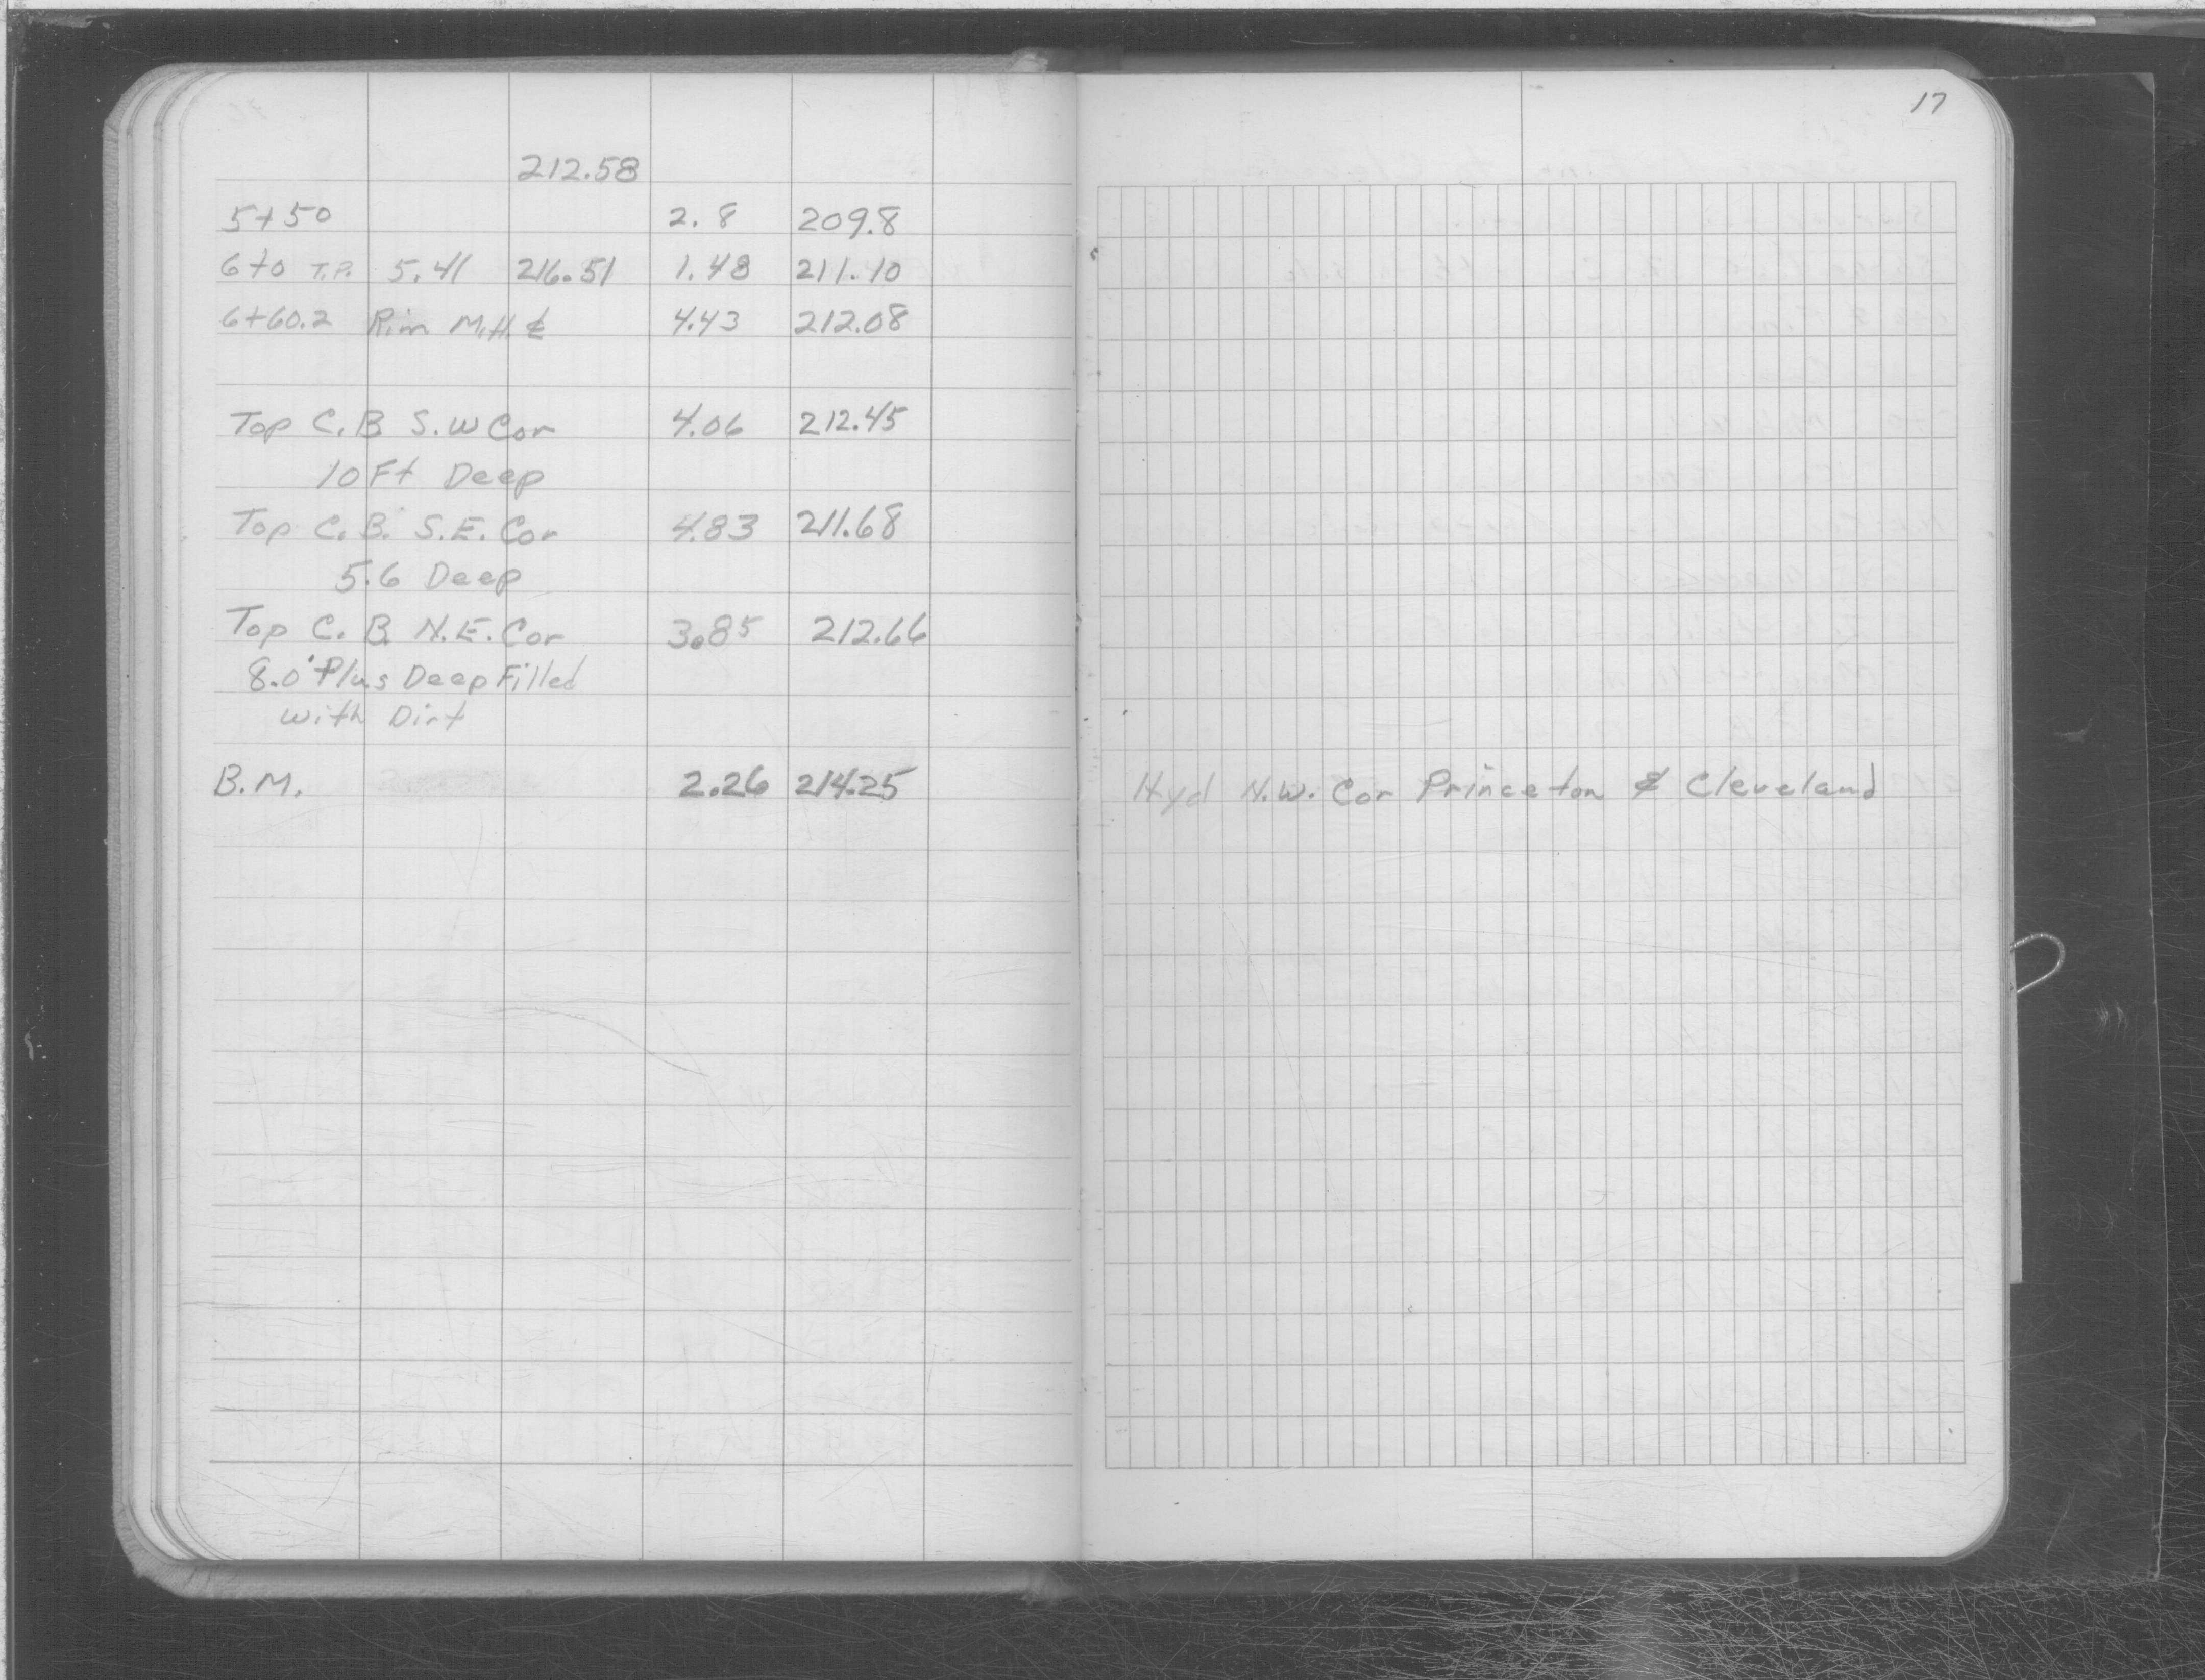 17
212.58
5+50 2.8 209.8
6+0 T.P. 5.41 216.51 1.48 211.10
6+60.2 Rim M.H. ℄ 4.43 212.08
Top C.B S.W Cor 4.06 212.45
10 Ft Deep
Top C.B. S.E. Cor 4.83 211.68
5.6 Deep
Top C.B. N.E. Cor 3.85 212.66
8.0' Plus Deep Filled
with Dirt
B.M. 2.26 214.25 Hyd N.W. Cor Princeton & Cleveland